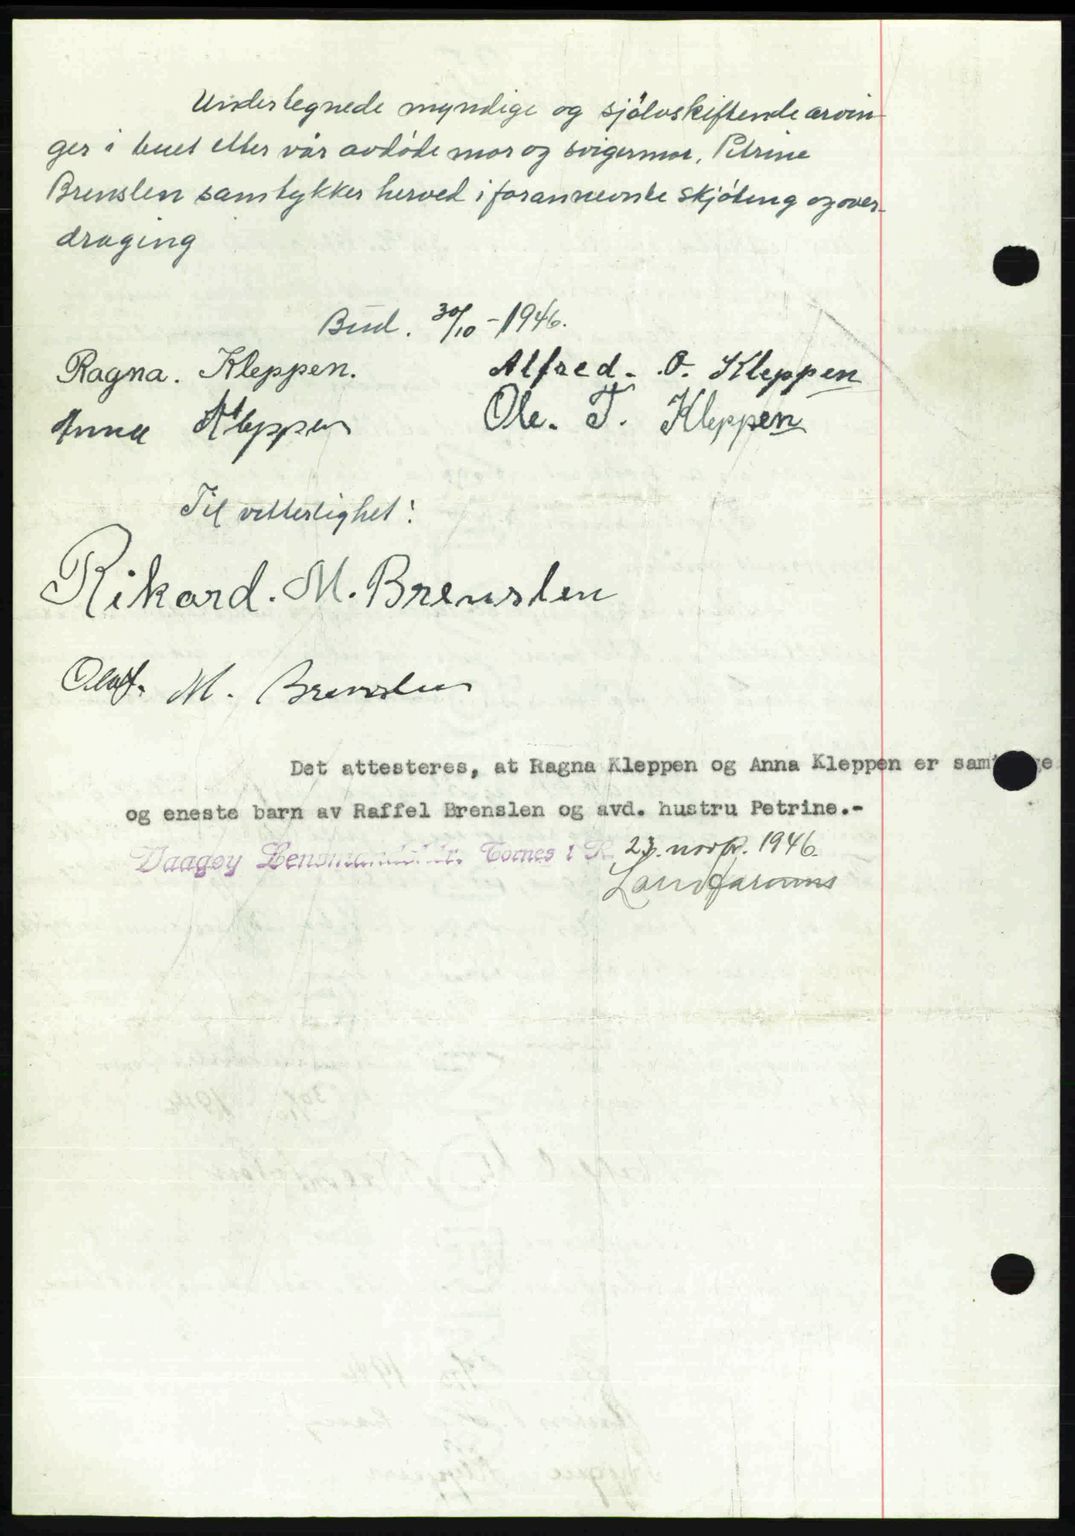 Undertegnede myndige og sjølvskiftende arvin-
ger i buet etter vår avdøde mor og svigermor, Petrine
Brenslen samtykker herved i forannevnte skjøting og over-
draging
Bud. 30/10 - 1946.
Ragna. Kleppen. Alfred. O. Kleppen
Anna Kleppen Ole. T. Kleppen
Til vitterlighet:
Rikard. M. Brenslen
Olaf. M. Brenslen
Det attesteres, at Ragna Kleppen og Anna Kleppen er samtlige
og eneste barn av Raffel Brenslen og avd. hustru Petrine.-
Vaagøy Lensmannsktr. Tornes i R. 23. novbr. 1946.